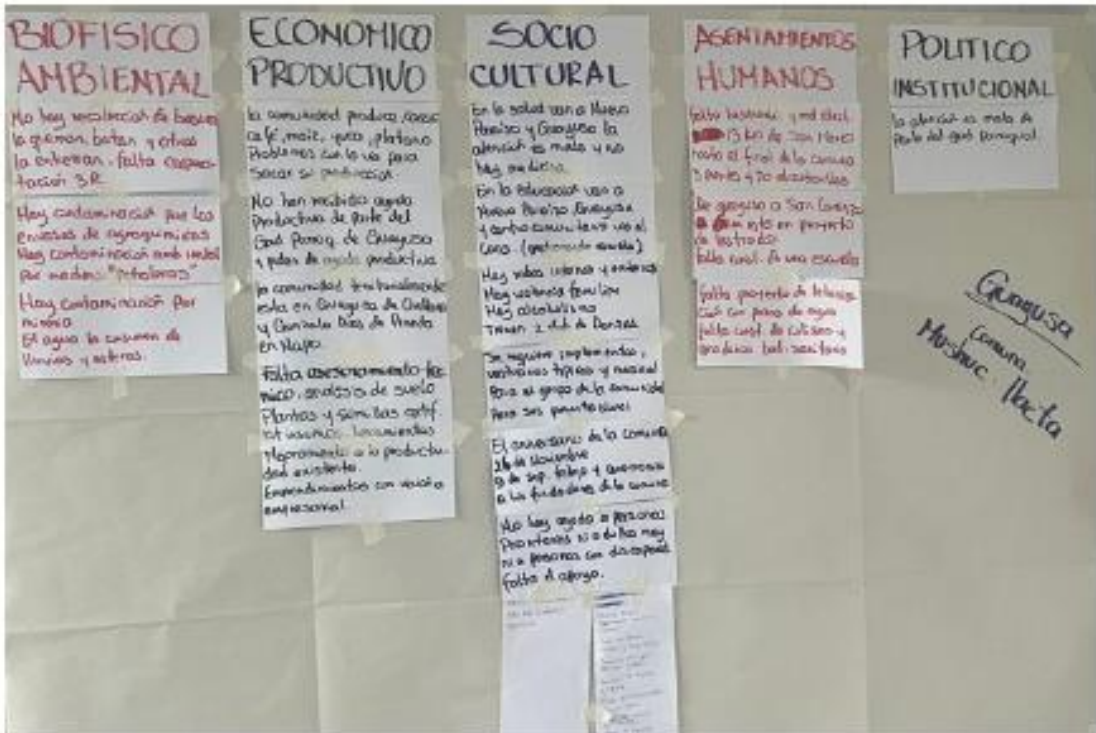 BIOFISICO
AMBIENTAL
No hay recolección de basura
la queman, botan y otros
la entierran. falta capaci-
tación 3R
Hay contaminación por los
envases de agroquimicos
Hay contaminación ambiental
por mecheros "Petroleros"
Hay contaminación Por
mineria
El agua la consumen de
lluvias y esteros.
ECONOMICO
PRODUCTIVO
la comunidad produce, cacao
café, maiz, yuca, platano
Problemas con la via para
Sacar su produccion
No han recibido ayuda
Productiva de parte del
Gad Parroq. de Guayusa
y piden de ayuda productiva
la comunidad territorialmente
esta en Guayusa de Orellana
y Gonzalo Dias de Pineda
en Napo.
Falta asesoramiento tec
nico, analisis de suelo
Plantas y semillas certif.
insumos herramientas
Mejoramiento a la producti
dad existente.
Emprendimientos con vision
empresarial
SOCIO
CULTURAL
En la salud van a Nuevo
Paraiso y Guayusa la
atención es mala y no
hay medicina.
En la educacion van a
Nuevo Paraiso, Guayusa
y centro comunitario
Coca. (gestionando escuela)
Hay robos internos y externos
Hay violencia familiar
Hay alcoholismo
Tienen 2 club de Danzas
Se requiere implementos,
vestuarios tipicos y musical
Para el grupo de la comunidad
El aniversario de la comuna
26 de Noviembre
9 de Sep.
a los fundadores de la comuna
No hay ayuda a personas
ni adulto may
ni a personas con discapacid
falta de apoyo.
ASENTAMIENTOS
HUMANOS
falta lastrado y red elect.
13 km de San Marcos
hasta el final de la comuna
3 puentes y 20 alcantarillas
De guayusa a San Lorenzo
esta en proyecto
de lastrado.
falta const. de una escuela
falta proyecto de
de agua
falta const. de coliseo y
graderios bat. sanitarias
POLITICO
INSTITUCIONAL
la atencion es mala de
Parte del gad parroquial.
Guayusa
Comuna
Mushuc Llacta